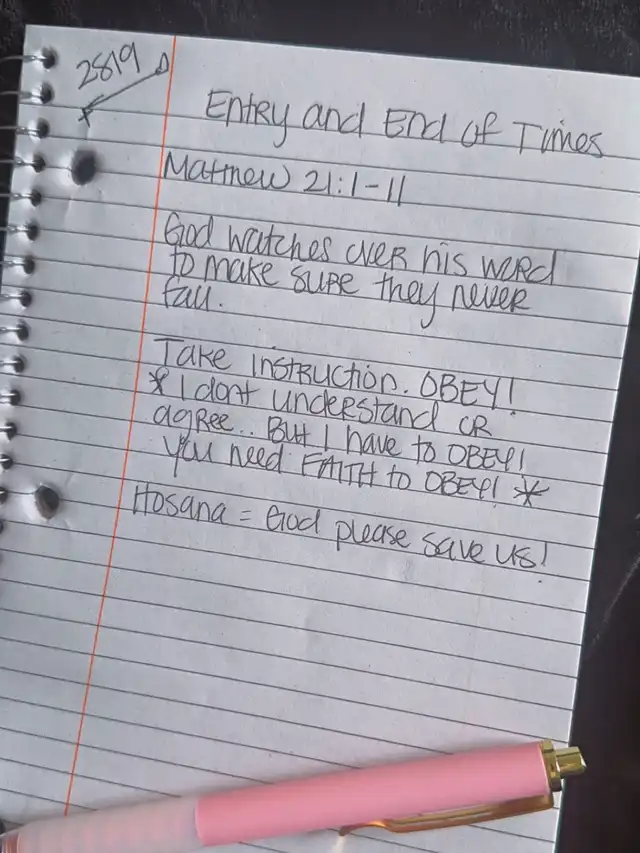 2819
Entry and End of Times
Matthew 21:1-11
God watches over his word
to make sure they never
fail.
Take instruction. OBEY!
* I dont understand or
agree... But I have to OBEY!
you need FAITH to OBEY! *
Hosana = God please save us!